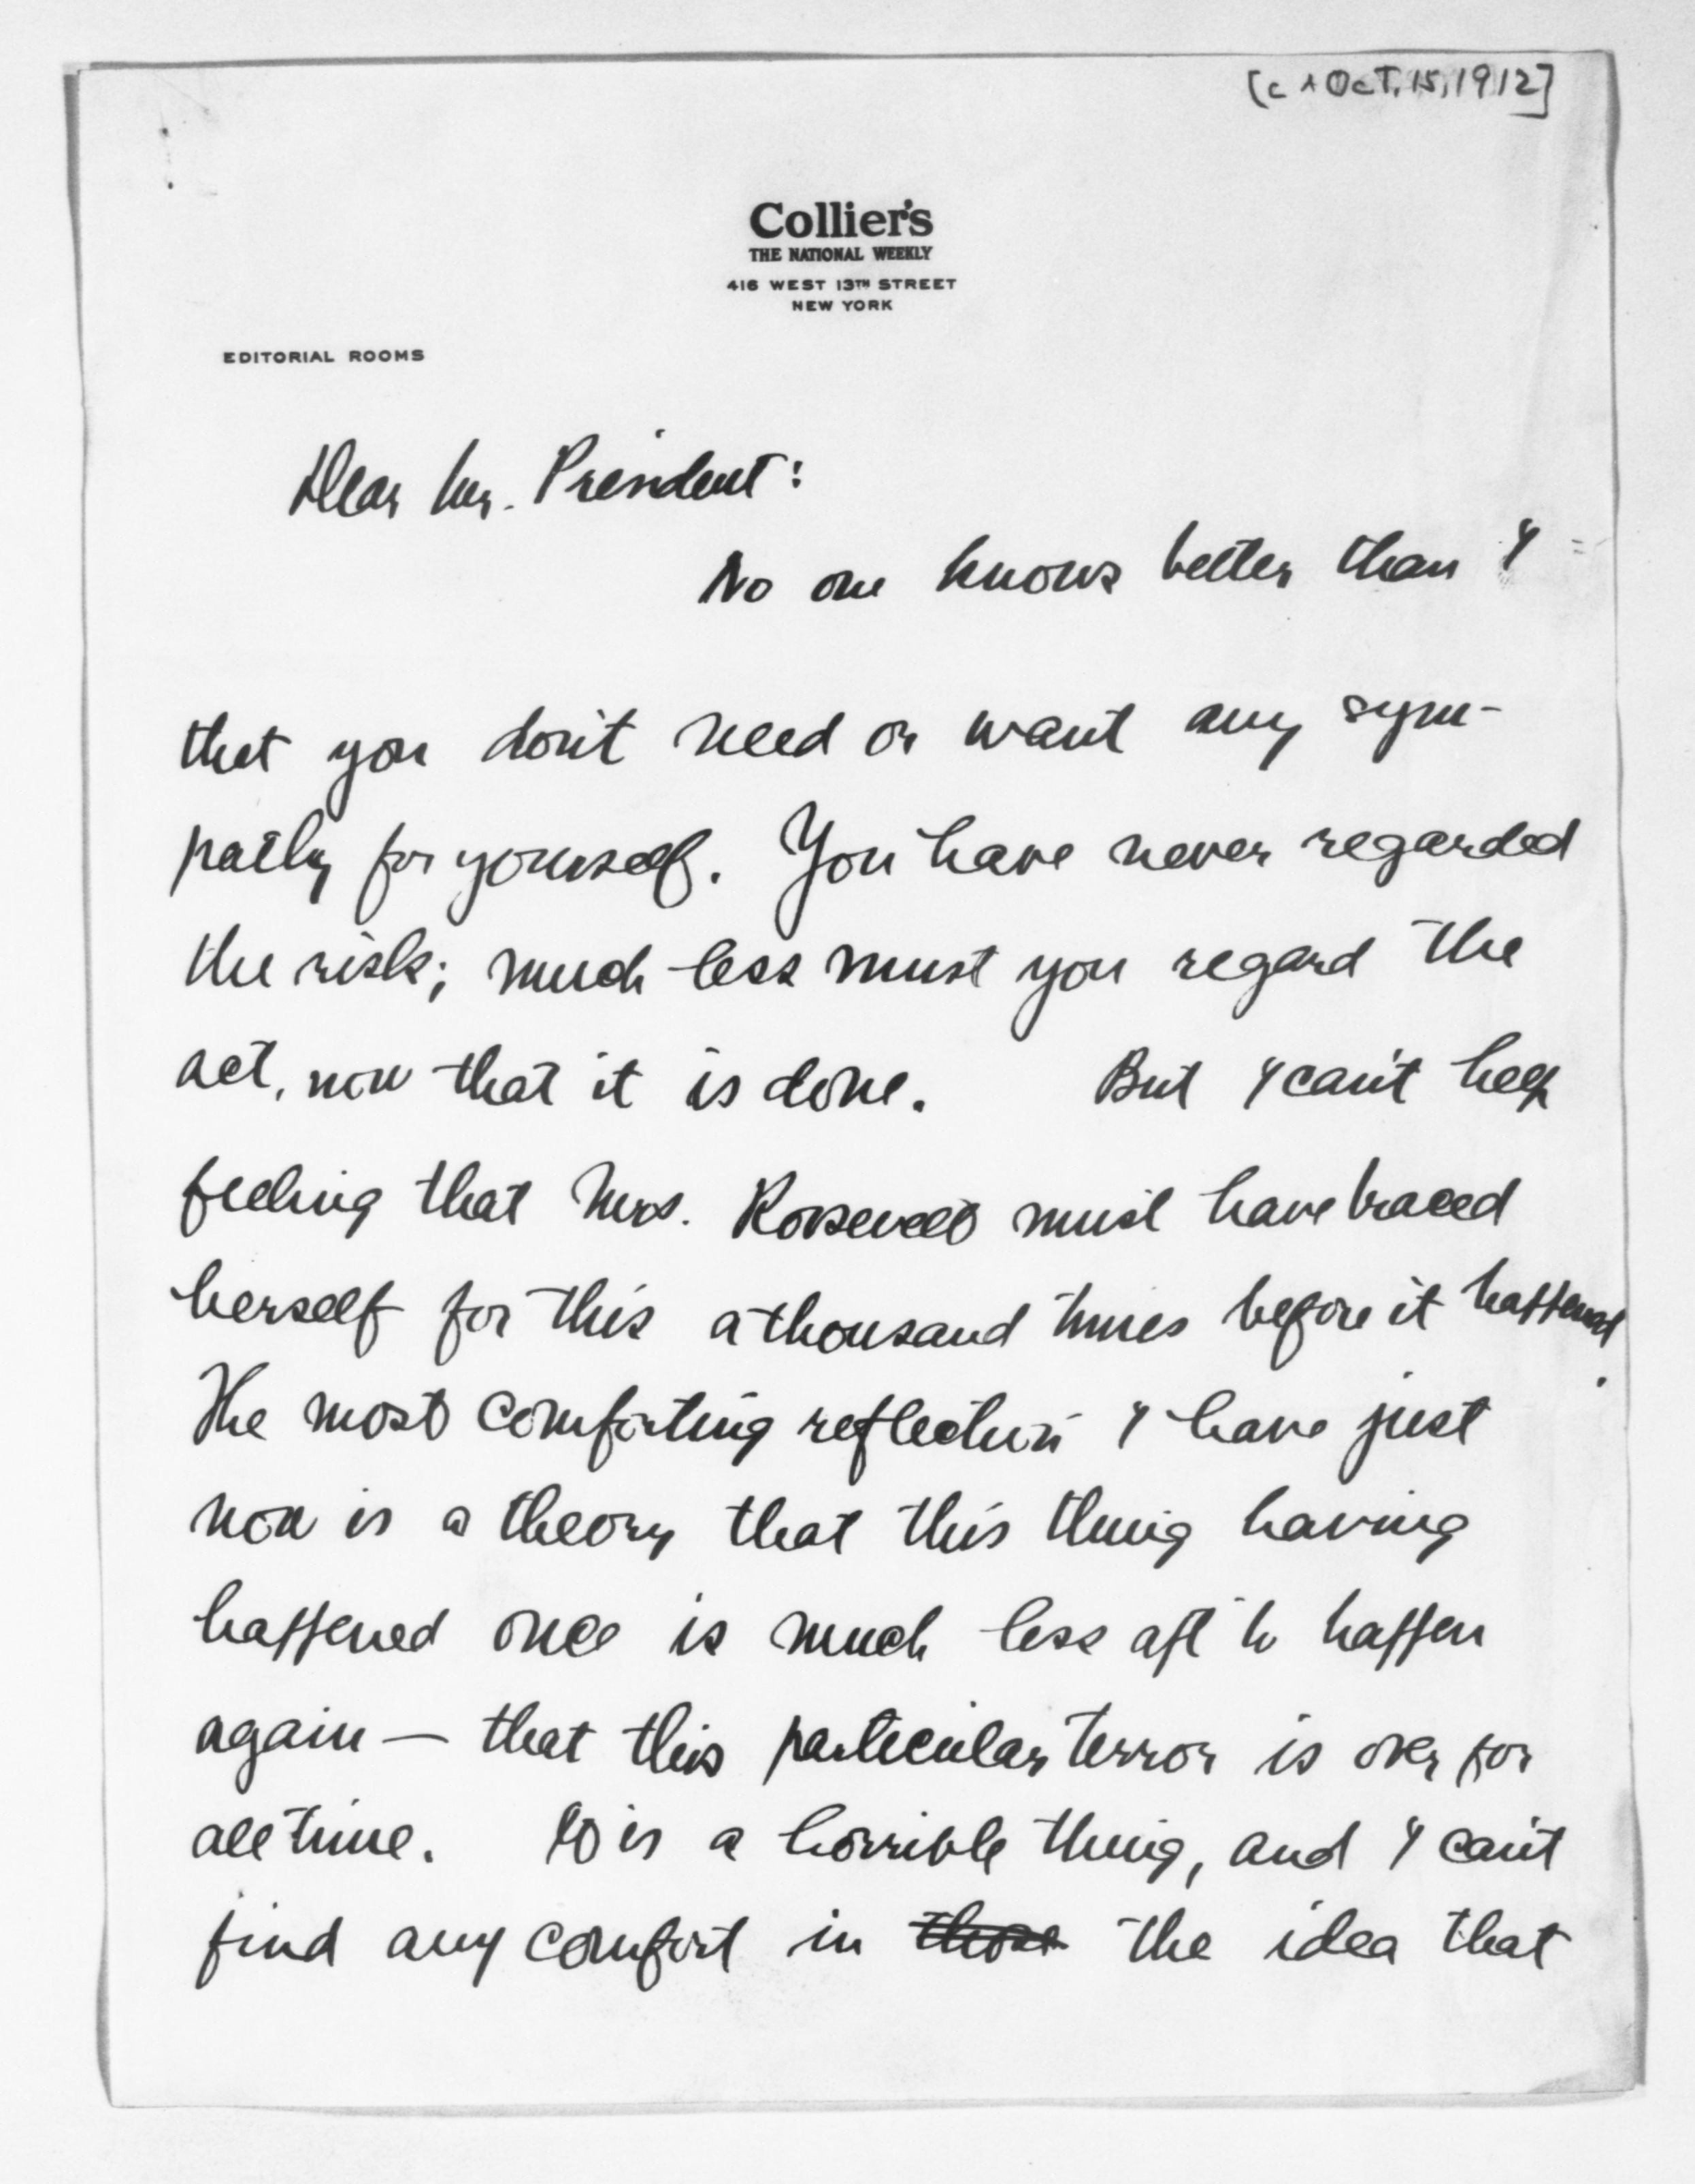 [ca Oct. 15, 1912]
Collier's
THE NATIONAL WEEKLY
416 WEST 13TH STREET
NEW YORK
EDITORIAL ROOMS
Dear Mr. President:
No one knows better than I
that you don't need or want any sym-
pathy for yourself. You have never regarded
the risk; much less must you regard the
act, now that it is done. But I can't help
feeling that Mrs. Roosevelt must have braced
herself for this a thousand times before it happened.
The most comforting reflection I have just
now is a theory that this thing having
happened once is much less apt to happen
again — that this particular terror is over for
all time. It is a horrible thing, and I can't
find any comfort in those the idea that